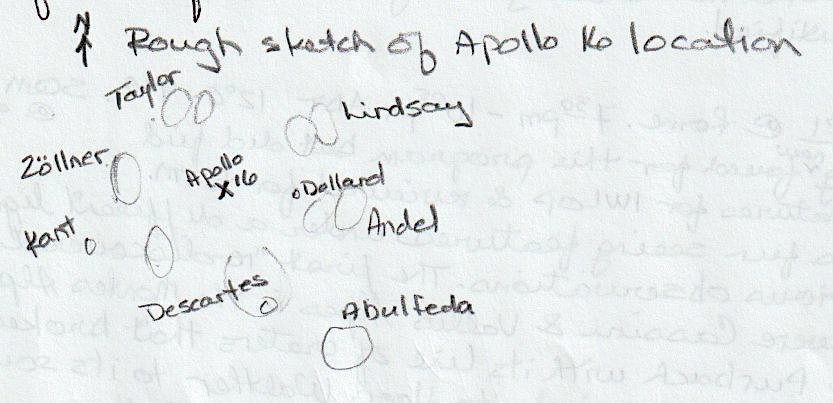 N
Rough sketch of Apollo 16 location
Taylor
Lindsay
Zöllner
Apollo
X16
Dolland
Kant
Andel
Descartes
Abulfeda